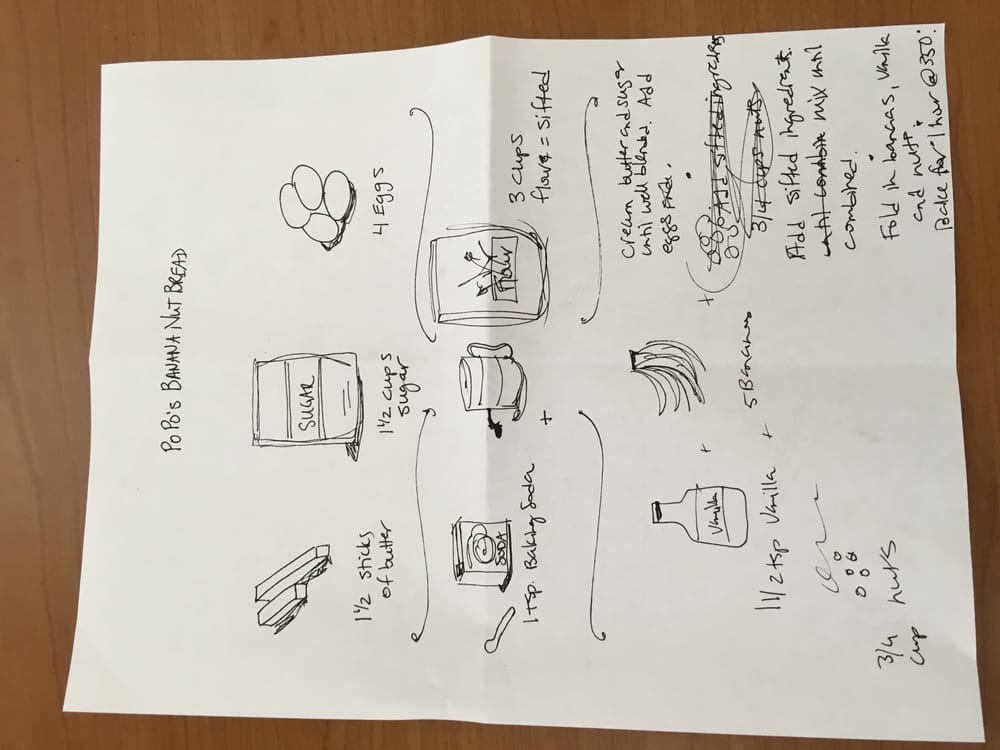 PoPo's BANANA NUT BREAD
SUGAR
1 1/2 sticks
of butter
1 1/2 cups
sugar
4 Eggs
SODA
Flour
1 tsp. Baking Soda
+
3 cups
flour = sifted
Vanilla
1 1/2 tsp Vanilla
+
+
5 Bananas
+
3/4
cup
nuts
Cream butter and sugar
until well blended. Add
eggs
Add sifted ingredients
3/4 cups nuts
Add sifted ingredients.
until combine mix until
combined.
Fold in bananas, vanilla
and nuts.
Bake for 1 hour @ 350°.